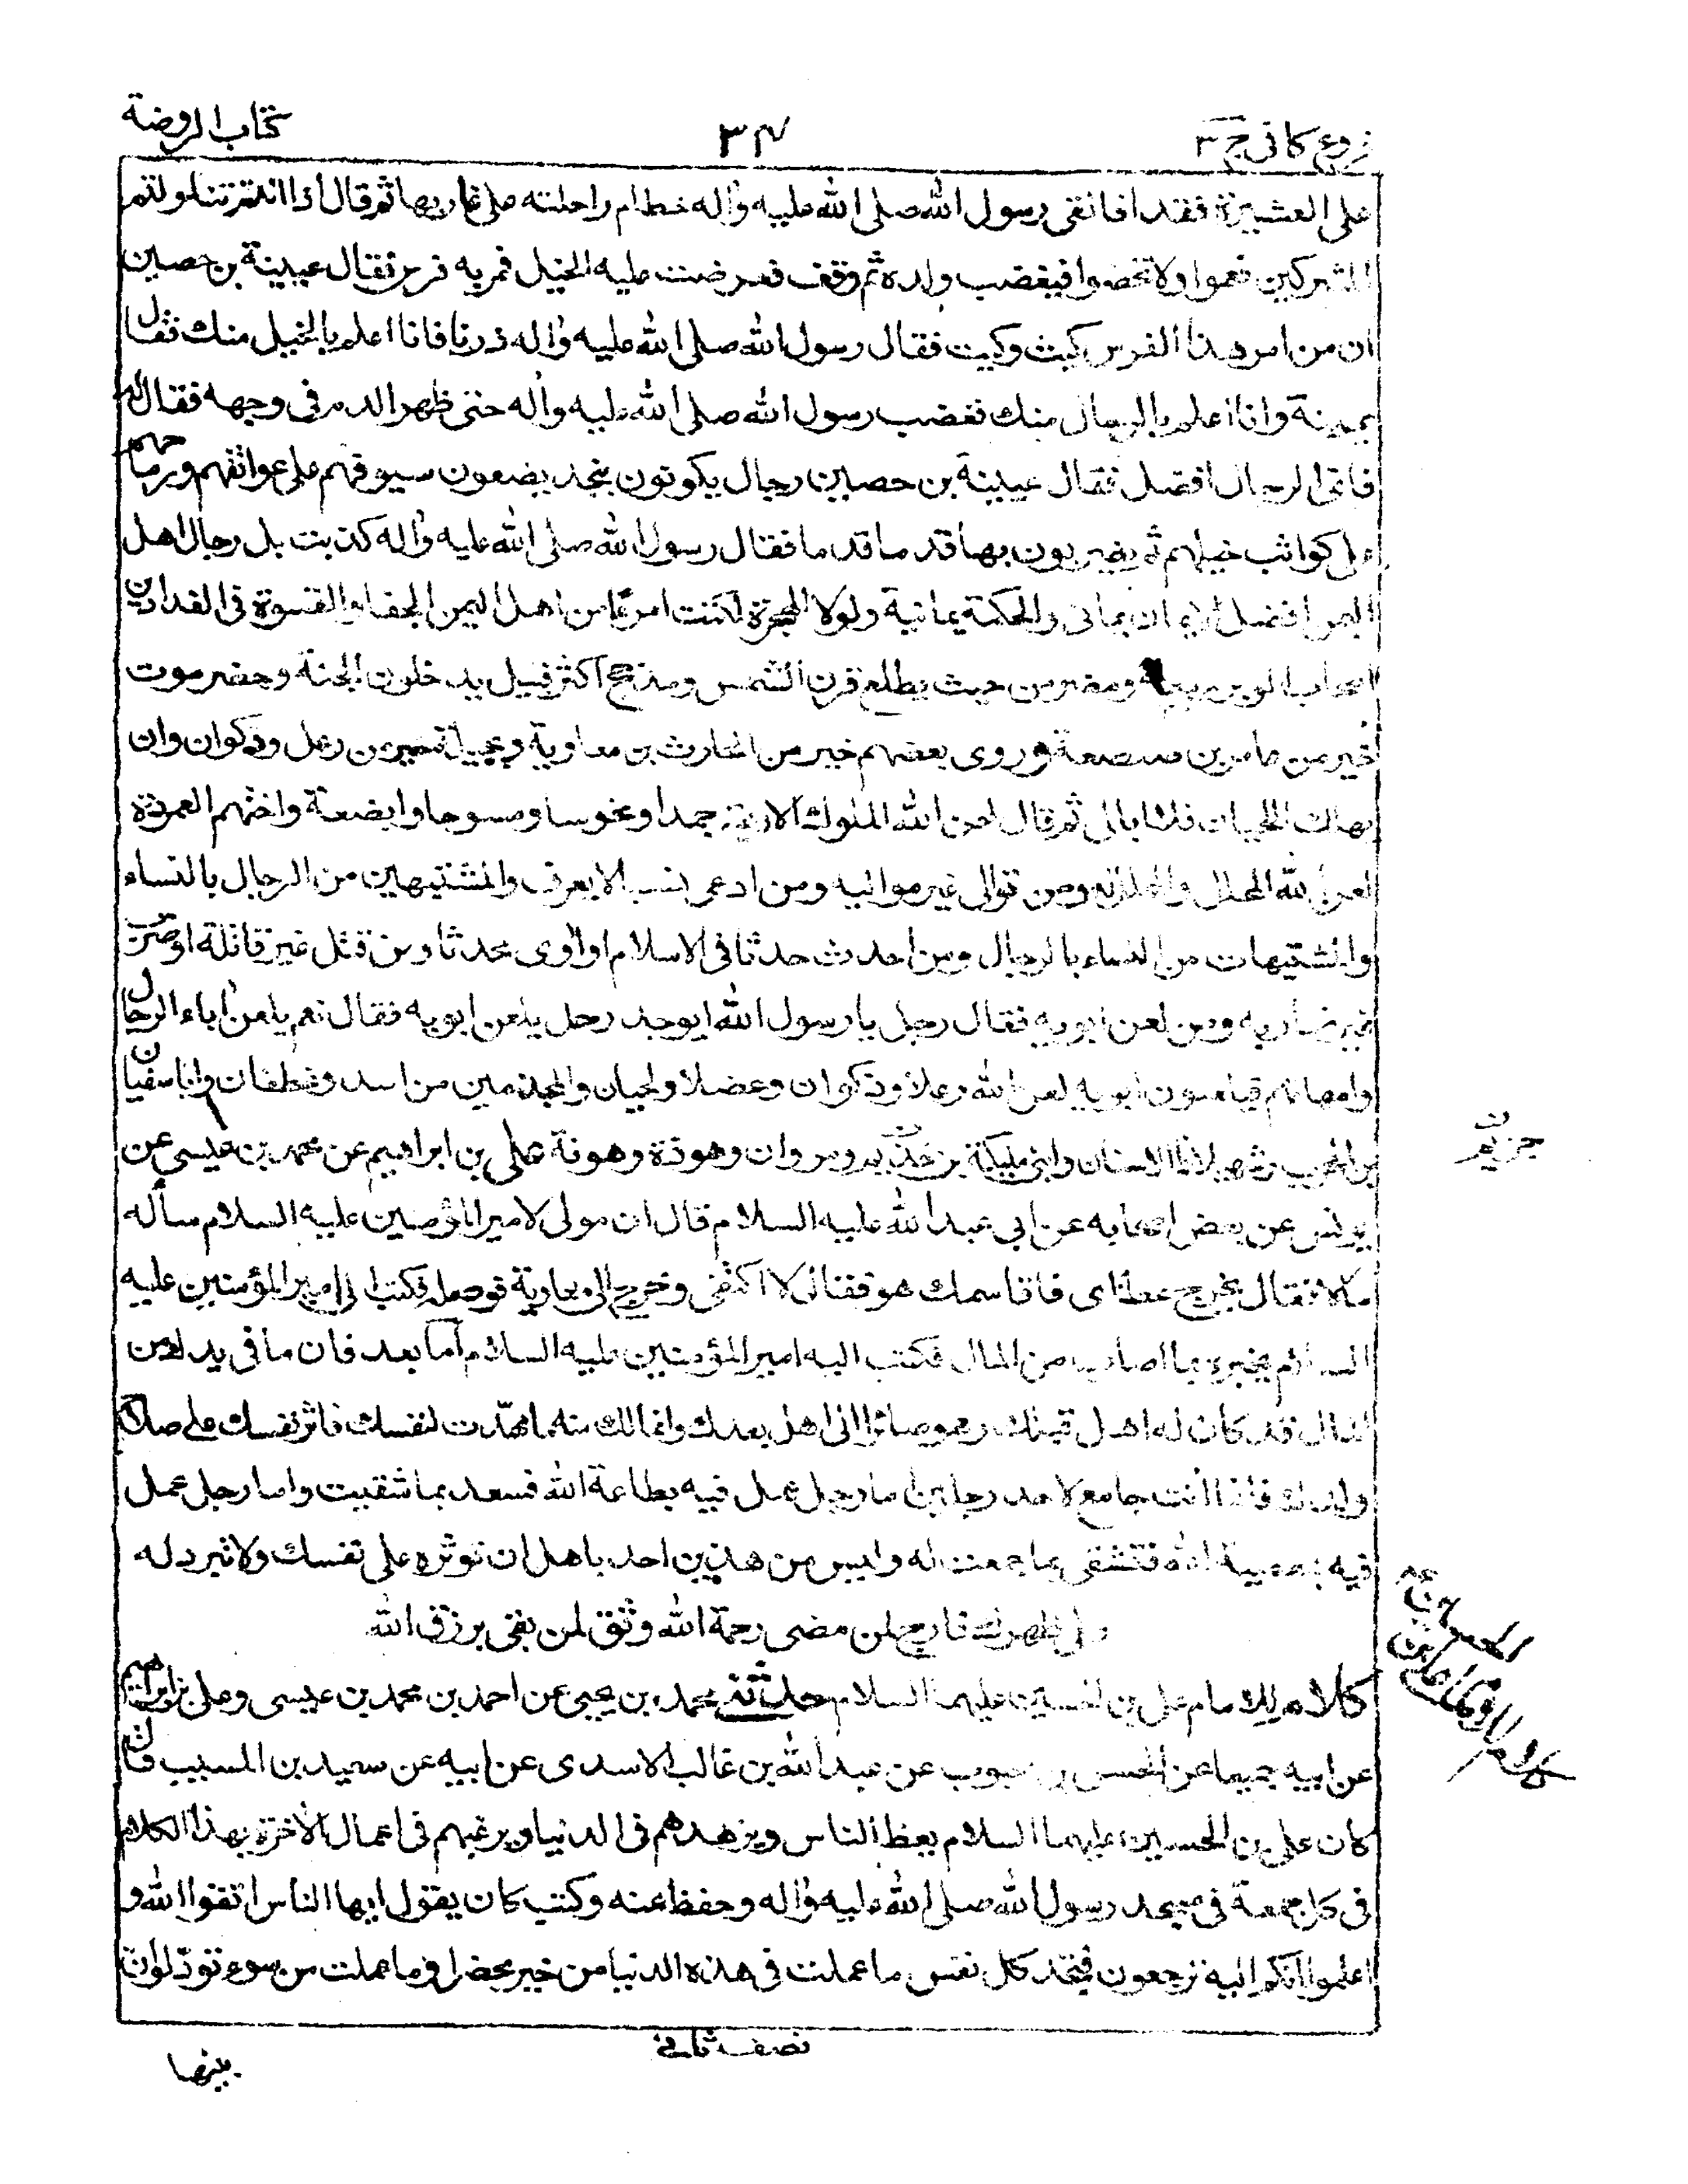 فروع كافى ج ٣
٣٤
كتاب الروضة
على العشيرة فقدا فالقى رسول الله صلى الله عليه واله خطام راحلته على غاربها ثم قال اذا انتم تناولتم
المشركين فعموا ولا تخصوا فيغضب ولده ثم وقف فعرضت عليه الخيل فمر به فرس فقال عيينة بن حصين
ان من امر هذا الفرس كيت وكيت فقال رسول الله صلى الله عليه واله ذرنا فانا اعلم بالخيل منك فقال
عيينة وانا اعلم بالرجال منك فغضب رسول الله صلى الله عليه واله حتى ظهر الدم فى وجهه فقال له
فاى الرجال افضل فقال عيينة بن حصين رجال يكونون بنجد يضعون سيوفهم على عواتقهم ورماحهم
على كواثب خيلهم ثم يضربون بها قدما قدما فقال رسول الله صلى الله عليه واله كذبت بل رجال اهل
اليمن افضل الايمان يمانى والحكمة يمانية ولولا الهجرة لكنت امرءا من اهل اليمن الجفاء والقسوة فى الفدادين
اصحاب الوبر ربيعة ومضر من حيث يطلع قرن الشمس ومذحج اكثر قبيل يدخلون الجنة وحضرموت
خير من عامر بن صعصعة وروى بعضهم خير من الحارث بن معاوية وبجيلة خير من رعل وذكوان وان
يهلك لحيان فلا ابالى ثم قال لعن الله الملوك الاربعة جمدا ومخوسا ومسوحا وابضعة واختهم العمردة
لعن الله المحلل والمحلل له ومن توالى غير مواليه ومن ادعى نسبا لا يعرف والمتشبهين من الرجال بالنساء
والمتشبهات من النساء بالرجال ومن احدث حدثا فى الاسلام او اوى محدثا ومن قتل غير قاتله او ضرب
غير ضاربه ومن لعن ابويه فقال رجل يا رسول الله ايوجد رجل يلعن ابويه فقال نعم يلعن اباء الرجال
وامهاتهم فيلعنون ابويه لعن الله رعلا وذكوان وعضلا ولحيان والمجذمين من اسد وغطفان وابا سفيان
بن حرب وشهيلا ذا الاسنان وابنى مليكة بن ومروان وهوذة وهونة على بن ابراهيم عن محمد بن عيسى عن
يونس عن بعض اصحابه عن ابى عبد الله عليه السلام قال ان مولى لامير المؤمنين عليه السلام سأله
مالا فقال يخرج عطائى فاقاسمك هو فقال لا اكتفى وخرج الى معاوية فوصله فكتب الى امير المؤمنين عليه
السلام يخبره بما اصاب من المال فكتب اليه امير المؤمنين عليه السلام اما بعد فان ما فى يدك من
المال قد كان له اهل قبلك وهو صائر الى اهل بعدك وانما لك منه ما مهدت لنفسك فاثر نفسك على صلاح
ولدك فانما انت جامع لاحد رجلين اما رجل عمل فيه بطاعة الله فسعد بما شقيت واما رجل عمل
فيه بمعصية الله فتشقى بما جمعت له وليس من هذين احد باهل ان تؤثره على نفسك ولا تبرد له
على ظهرك فارج لمن مضى رحمة الله وثق لمن بقى برزق الله
كلام للامام على بن الحسين عليهما السلام حدثنى محمد بن يحيى عن احمد بن محمد بن عيسى وعلى بن ابراهيم
عن ابيه جميعا عن الحسن بن محبوب عن عبد الله بن غالب الاسدى عن ابيه عن سعيد بن المسيب قال
كان على بن الحسين عليهما السلام يعظ الناس ويزهدهم فى الدنيا ويرغبهم فى اعمال الاخرة بهذا الكلام
فى كل جمعة فى مسجد رسول الله صلى الله عليه واله وحفظ عنه وكتب كان يقول ايها الناس اتقوا الله و
اعلموا انكم اليه ترجعون فتجد كل نفس ما عملت فى هذه الدنيا من خير محضرا وما عملت من سوء تود لو ان
نصف ثانى
بينها